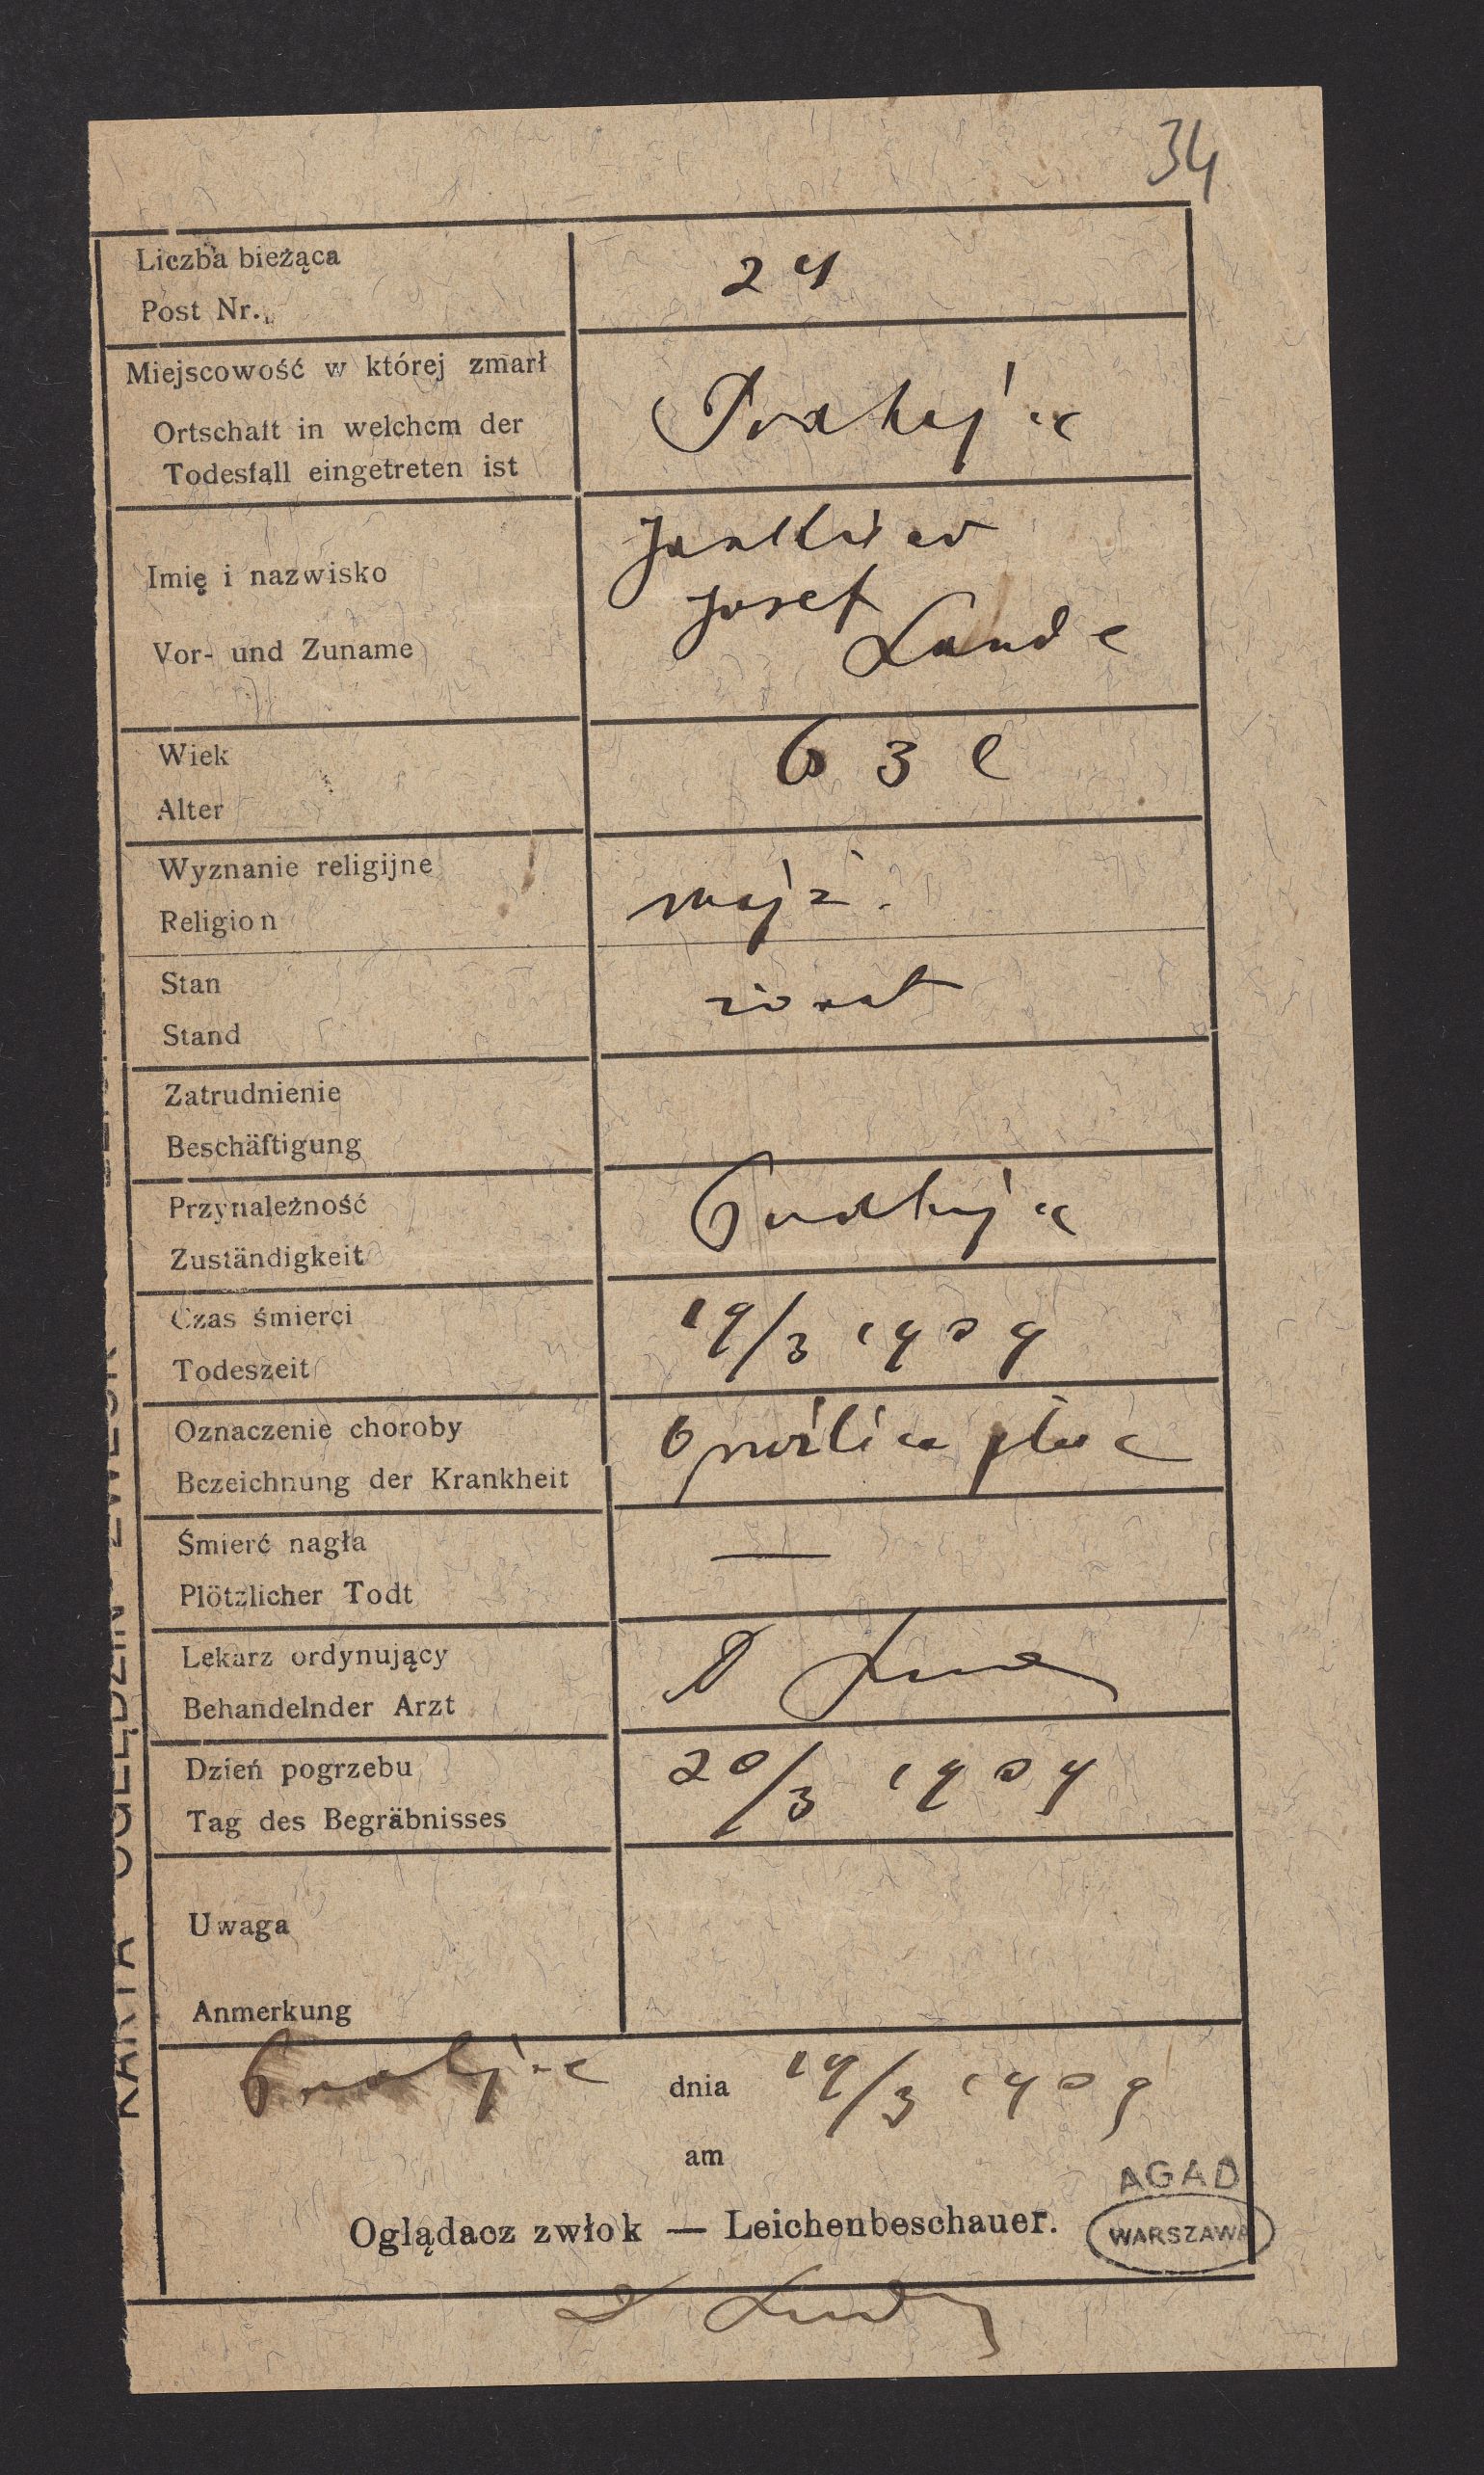 34
Liczba bieżąca
Post Nr.
24
Miejscowość w której zmarł
Ortschaft in welchem der
Todesfall eingetreten ist
Podhajce
Imię i nazwisko
Vor- und Zuname
Josef
Lande
Wiek
Alter
63 l
Wyznanie religijne
Religion
mojż.
Stan
Stand
żonat
Zatrudnienie
Beschäftigung
Przynależność
Zuständigkeit
Podhajce
Czas śmierci
Todeszeit
19/3 1909
Oznaczenie choroby
Bezeichnung der Krankheit
Gruźlica płuc
Śmierć nagła
Plötzlicher Todt
—
Lekarz ordynujący
Behandelnder Arzt
D
Dzień pogrzebu
Tag des Begräbnisses
20/3 1909
Uwaga
Anmerkung
Podhajce dnia 19/3 1909
am
AGAD
WARSZAWA
Oglądacz zwłok — Leichenbeschauer.
KARTA OGLĘDZIN ZWŁOK